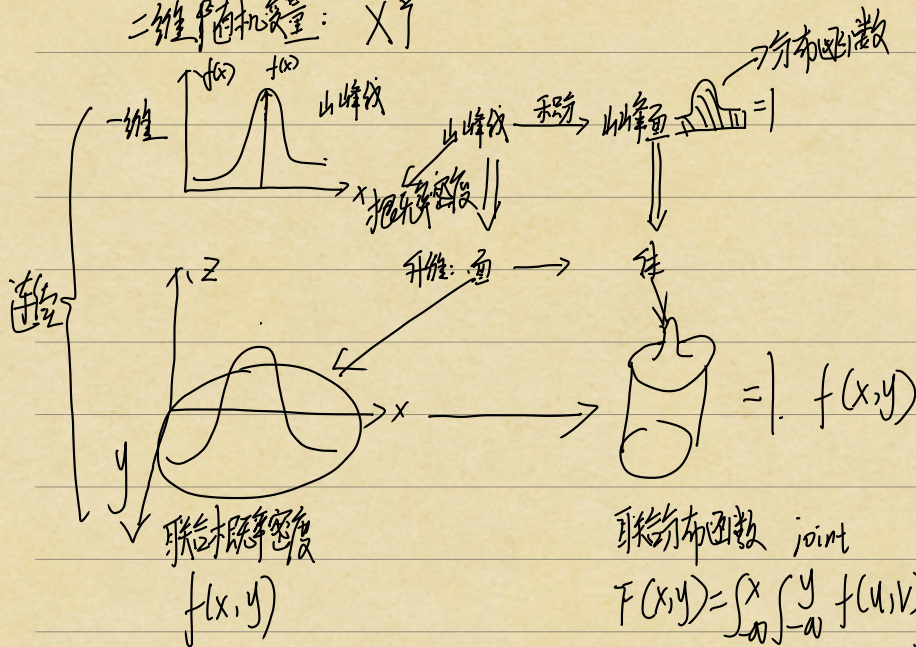 二维随机变量: X Y
f(x) f(x) 山峰线
一维
x
山峰线 积分 山峰面 =1
分布函数
概率密度
升维: 面
体
连续
Z
x
y
=1. f(x,y)
联合概率密度
f(x,y)
联合分布函数 joint
F(x,y)=∫-∞x∫-∞y f(u,v)